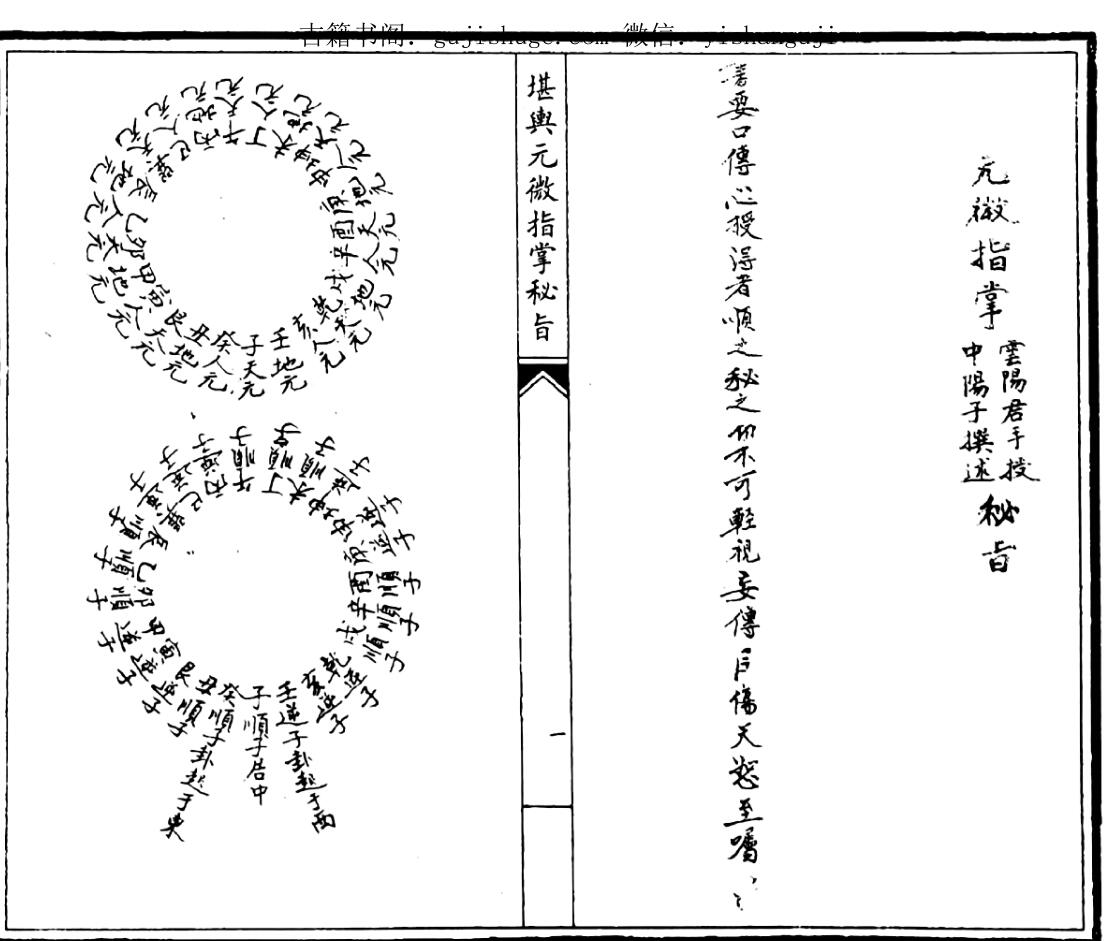 古籍书阁：gujishuge.com 微信：yishanguji
元微指掌
雲陽君手授
中陽子撰述
秘旨
要口傳心授得者順之秘之切不可輕視妄傳自傷天怒至囑
堪輿元微指掌秘旨
一
子天元
癸人元
丑地元
艮天元
寅人元
甲地元
卯天元
乙人元
辰地元
巽天元
巳人元
丙地元
午天元
丁人元
未地元
坤天元
申人元
庚地元
酉天元
辛人元
戌地元
乾天元
亥人元
壬地元
子順子居中
癸順子卦起于東
丑順子
艮逆子
寅逆子
甲逆子
卯順子
乙順子
辰順子
巽逆子
巳逆子
丙逆子
午順子
丁順子
未順子
坤逆子
申逆子
庚逆子
酉順子
辛順子
戌順子
乾逆子
亥逆子
壬逆子卦起于西